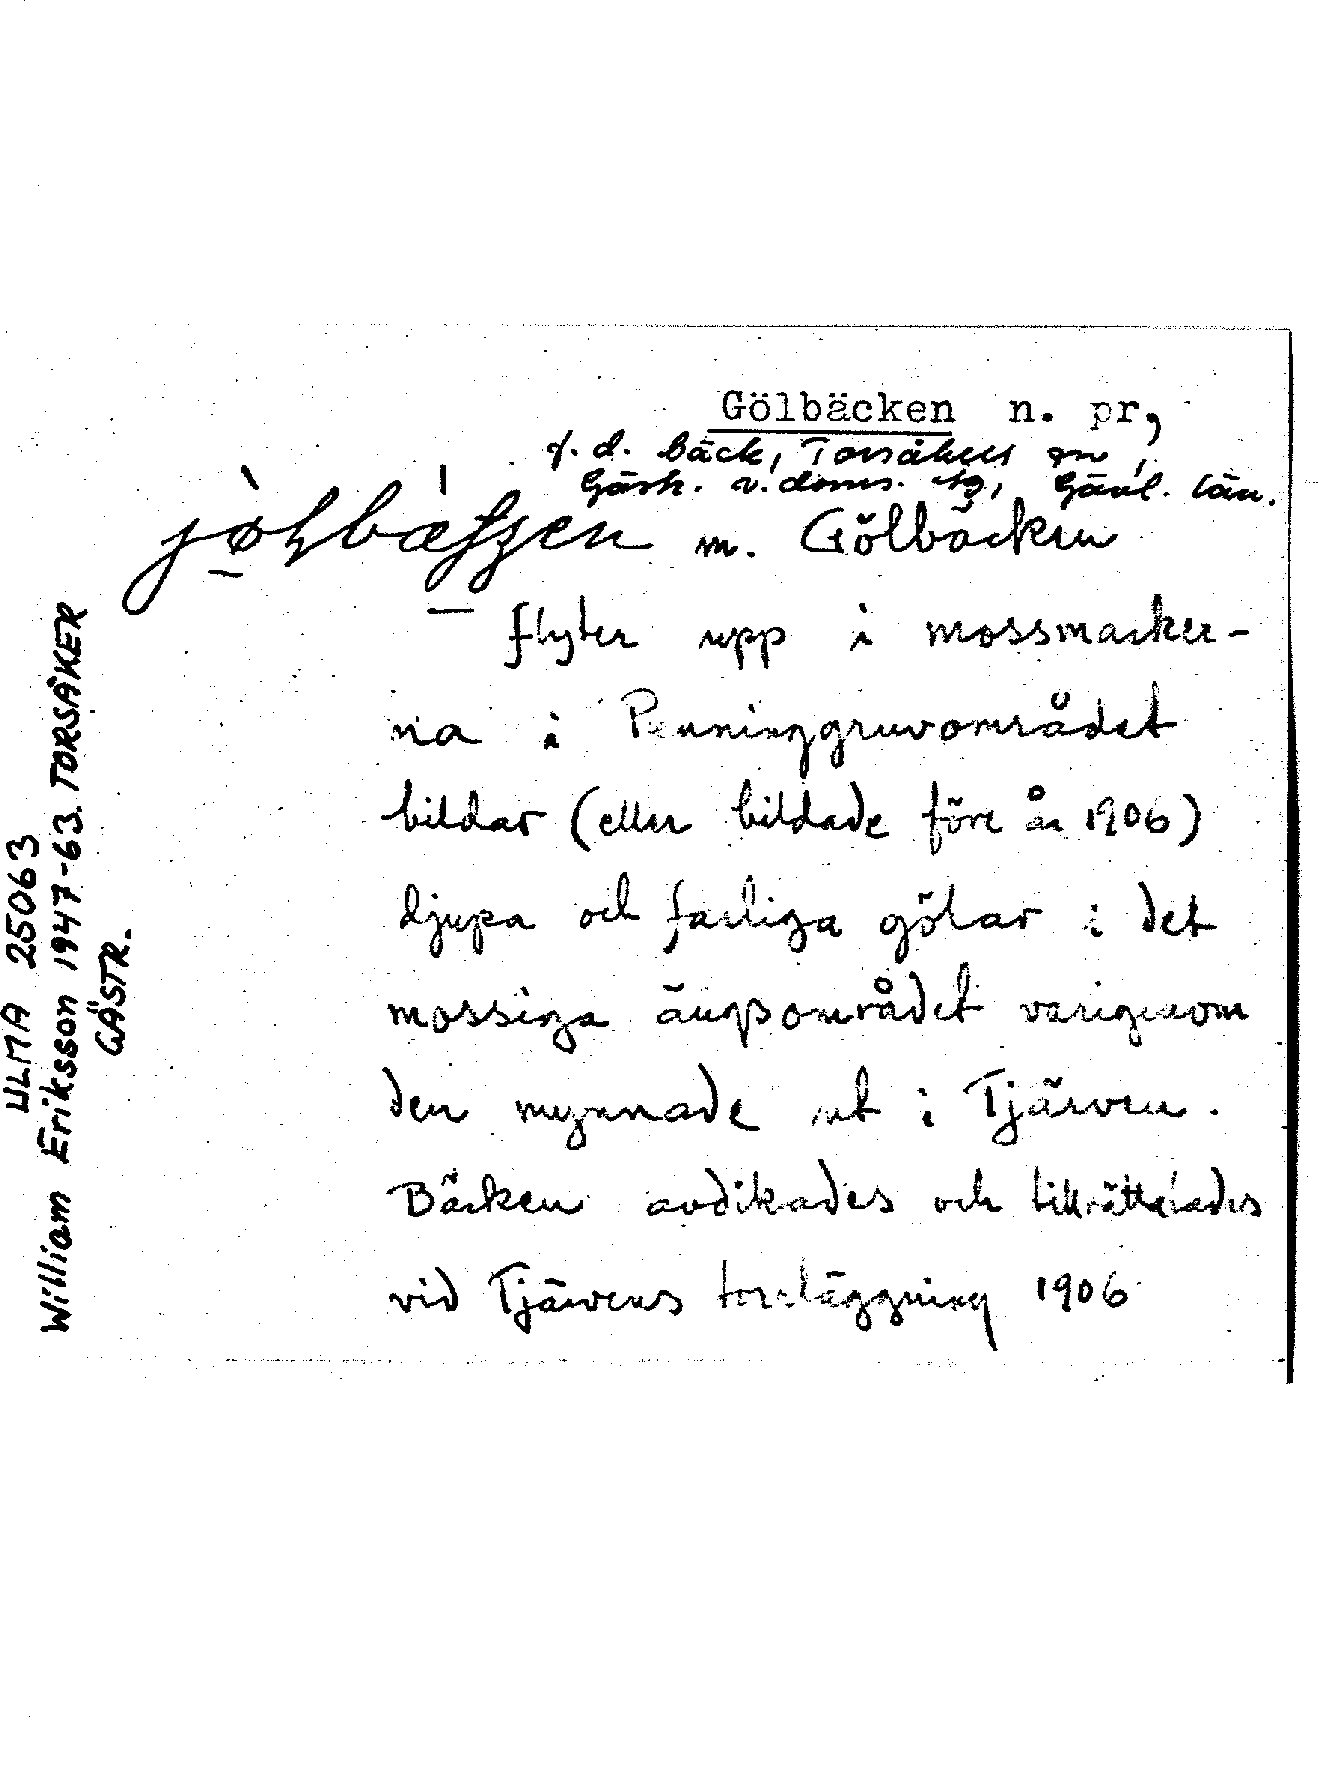 Gölbäcken n. pr,
f. d. bäck, Torsåkers sn,
Gästr. v. doms. tg, Gävl. län.
m. Gölbäcken
flyter upp i mossmarker-
na i Penninggruvområdet
bildar (eller bildade före år 1906)
djupa och farliga gölar i det
mossiga ängsområdet varigenom
den mynnade ut i Tjärven.
Bäcken avdikades och tillrättelades
vid Tjärvens torrläggning 1906
ULMA 25063
William Eriksson 1947-63. TORSÅKER
GÄSTR.